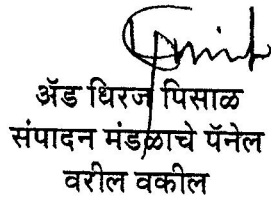 ॲड धिरज पिसाळ
संपादन मंडळाचे पॅनेल
वरील वकील